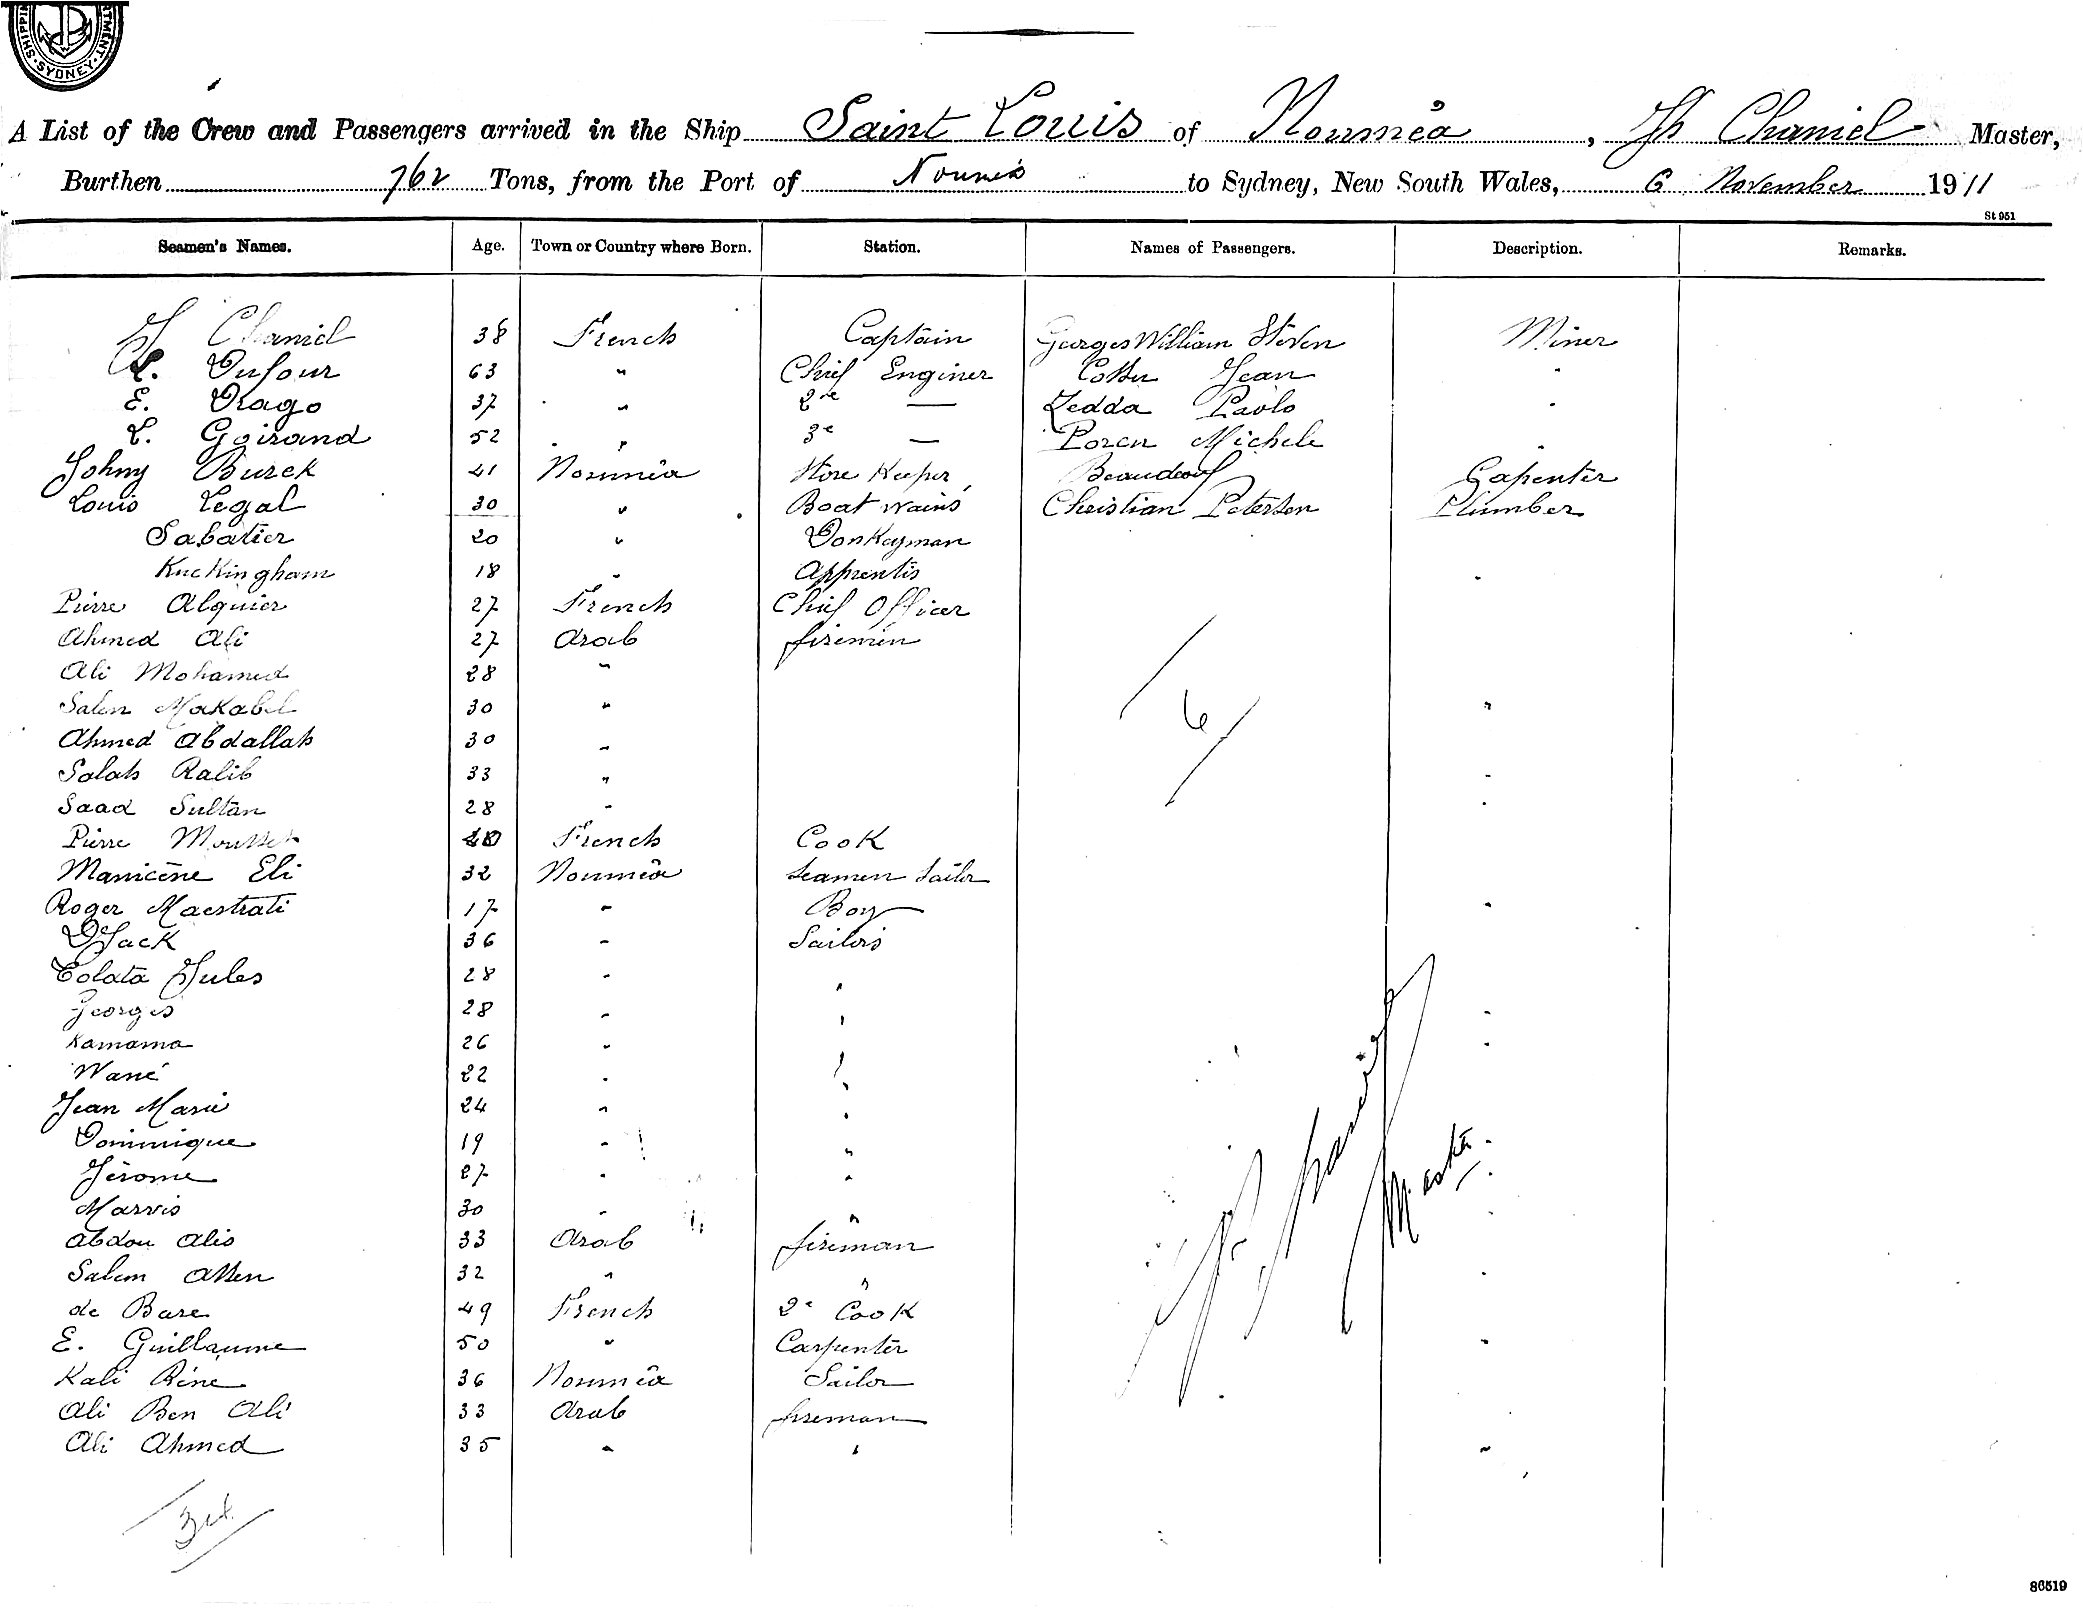 SHIPPIN RTMENT
SYDNEY
A List of the Crew and Passengers arrived in the Ship Saint Louis of Nouméa, Jh Chaniel Master,
Burthen 762 Tons, from the Port of Nouméa to Sydney, New South Wales, 6 November 1911
St 951
Seamen's Names. Age. Town or Country where Born. Station. Names of Passengers. Description. Remarks.
J Chaniel 38 French Captain Georges William Steven Miner
L. Dufour 63 " Chief Enginer Jean "
E. Drago 37 " 2de — Zedda Paolo "
L. Goirand 52 " 3e — Poren Michele "
Johny Burck 41 Nouméa Store Keeper Beaudeouf Capenter
Louis Legal 30 " Boat wains Christian Petersen Plumber
Sabatier 20 " Donkeyman
Kuckingham 18 " Apprentis
Pierre Alquier 27 French Chief Officer
Ahmed Ali 27 Arab firemen
Ali Mohamed 28 "
Salem Makabel 30 "
Ahmed Abdallah 30 "
Salah Ralib 33 "
Saad Sultan 28 "
6
Pierre 40 French Cook
Manicène Eli 32 Nouméa Seamen Sailor
Roger Maestrati 17 " Boy
DJack 36 " Sailors
Colata Jules 28 " "
Georges 28 " "
Kamama 26 " "
Wané 22 " "
Jean Marie 24 " "
Dominique 19 " "
Jérome 27 " "
Marvis 30 " "
Abdou Alis 33 Arab fireman
Salem Assen 32 " "
de Bare 49 French 2e Cook
E. Guillaume 50 " Carpenter
Kali Béné 36 Nouméa Sailor
Ali Ben Ali 33 Arab fireman
Ali Ahmed 35 " "
Jh Chaniel
Master
34
86519